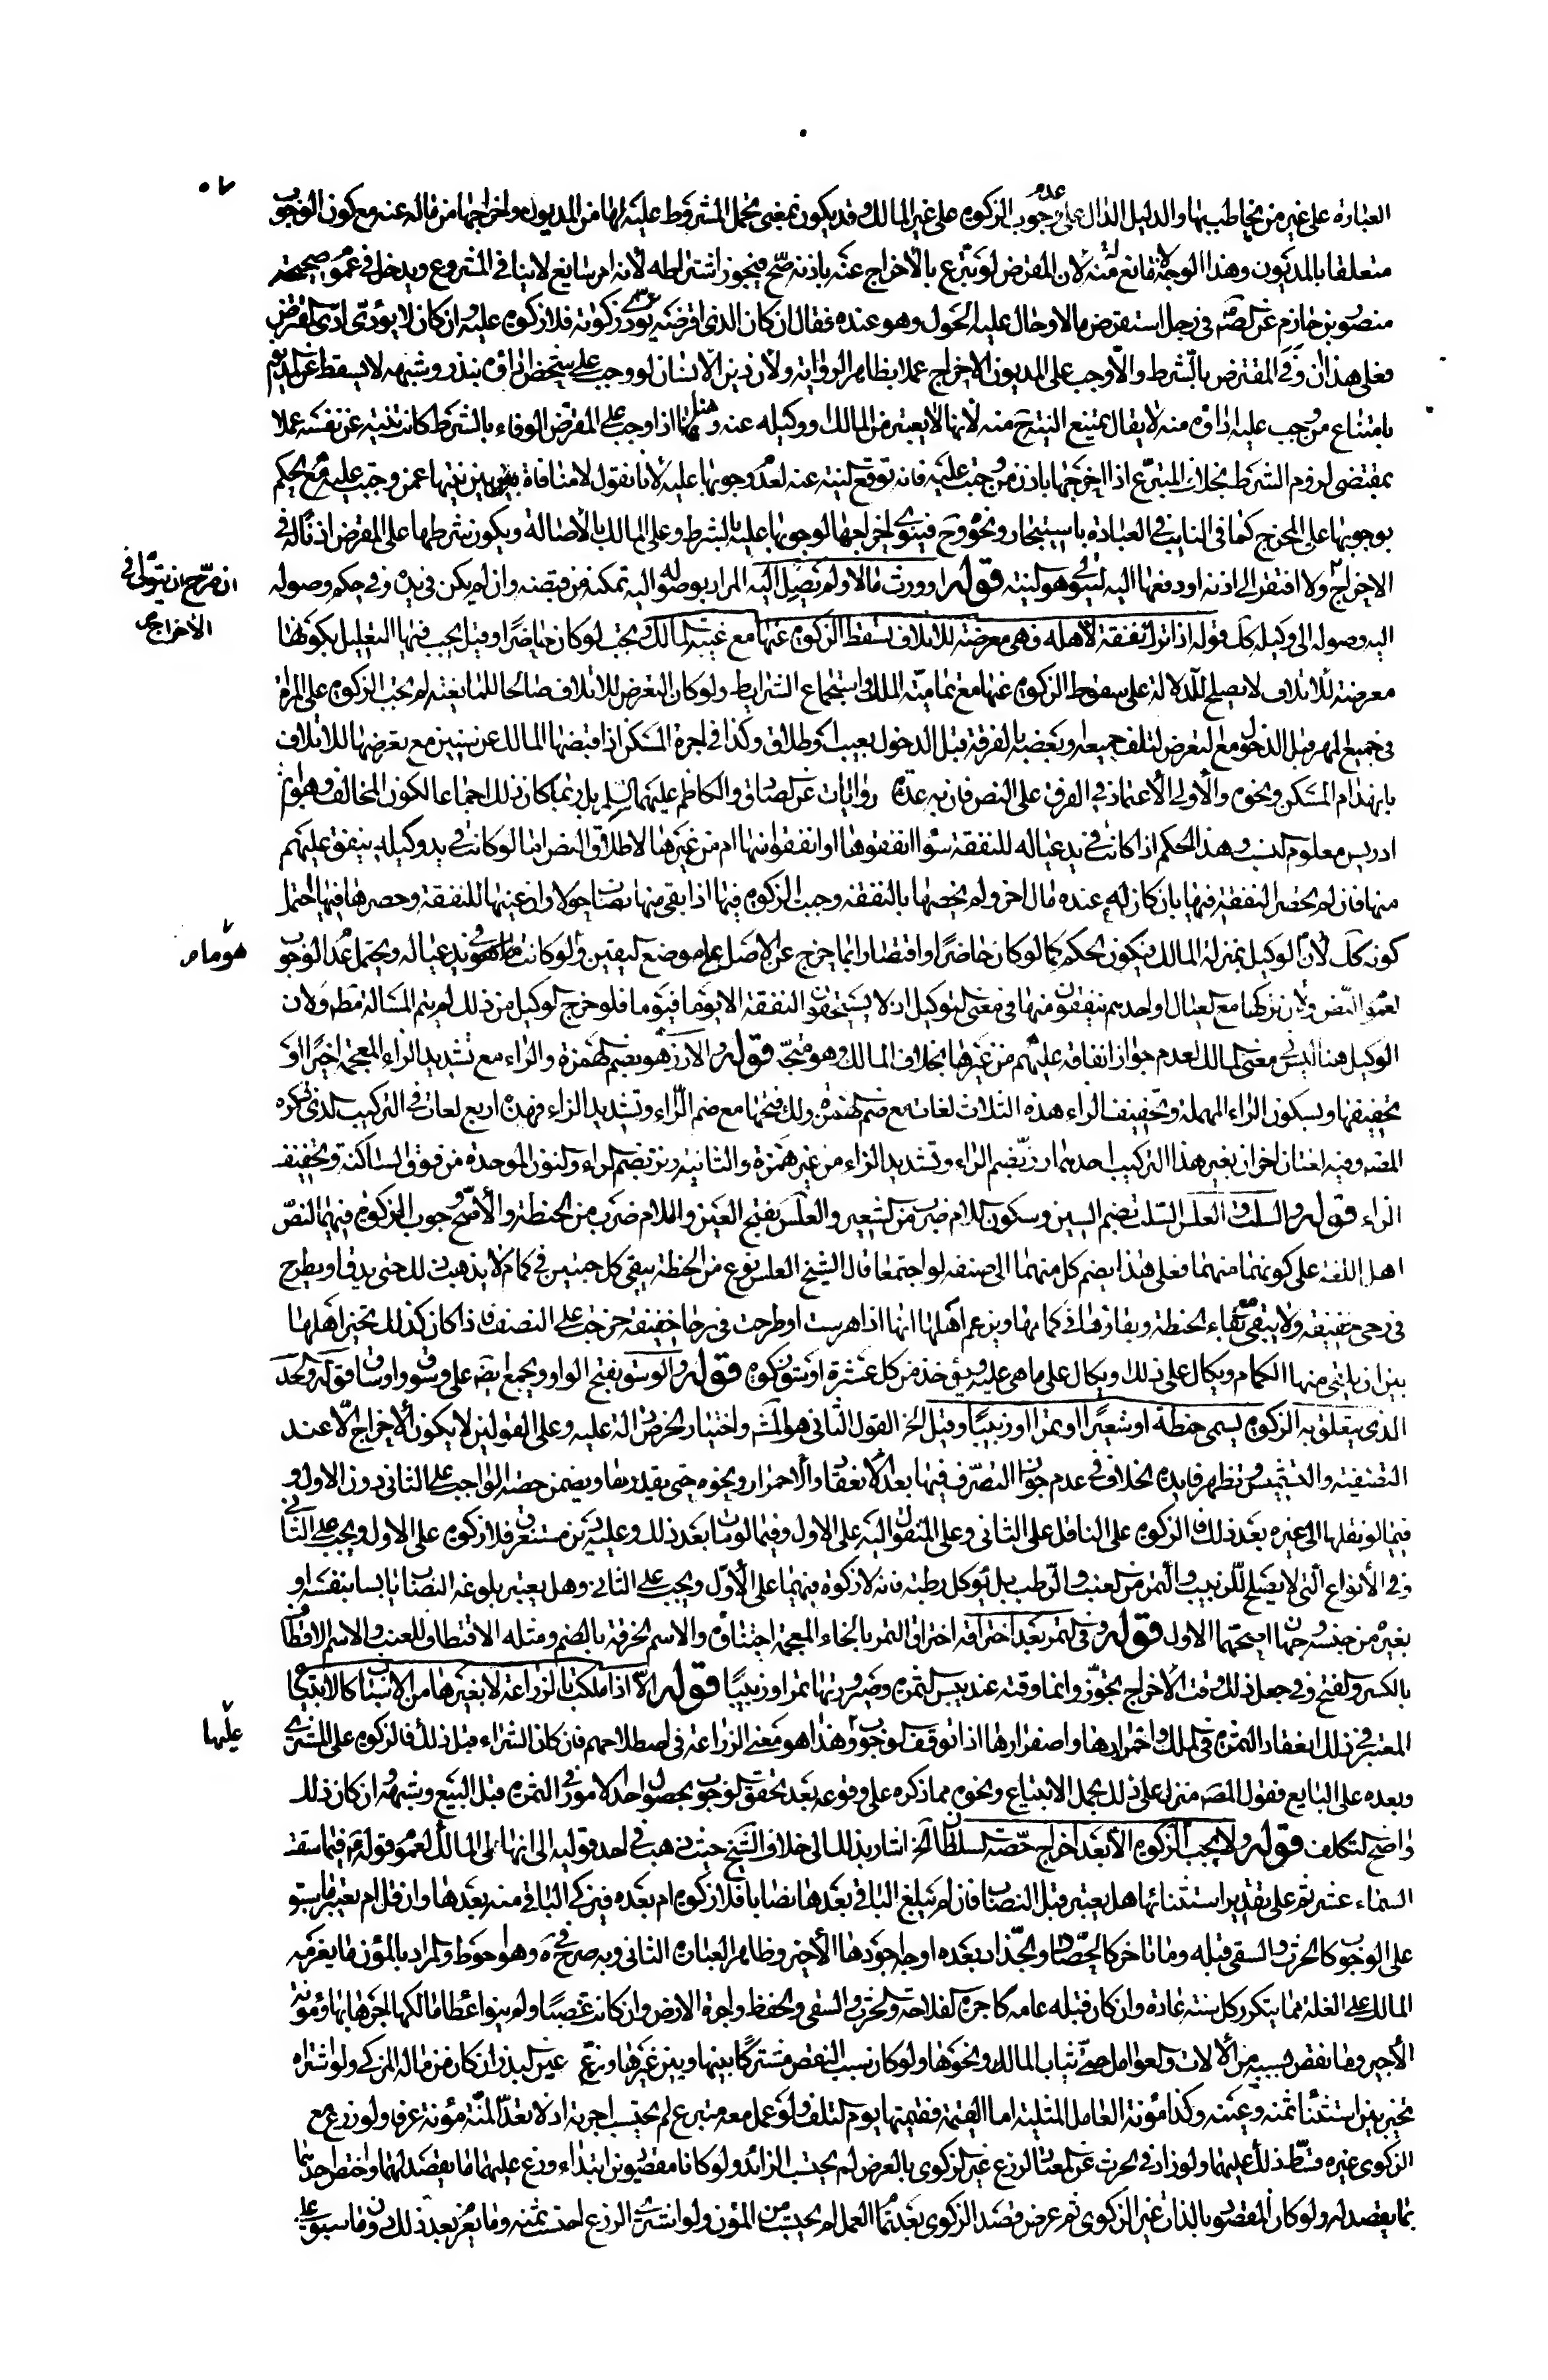 العبادة على غير من يخاطب بها والدليل الدال على عدم وجوب الزكوة على غير المالك وقد يكون بمعنى تحمل المشروط عليه لها من المديون واخراجها من ماله عنه مع كون الوجوب
متعلقا بالمديون وهذا الوجه لا مانع منه لان المقرض لو تبرع بالاخراج عنه باذنه صح فيجوز اشتراطه لأنه امر سايغ لا ينافى المشروع ويدخل فى عموم صحيحة
منصور بن حازم عن الصم فى رجل استقرض مالا وحال عليه الحول وهو عنده فقال ان كان الذى اقرضه يؤدى زكوته فلا زكوة عليه وان كان لا يؤدى ادى المقترض
فعلى هذا ان وفى المقترض بالشرط والا وجب على المديون الاخراج عملا بظاهر الرواية ولان دين الانسان لو وجب على شخص اداؤه بنذر وشبهه لا يسقط عن المديون
بامتناع من وجب عليه اداؤه منه لا يقال يمتنع النية ح منه لأنها لا يعتبر من المالك او وكيله عنه وهنا اذا وجب على المقرض الوفاء بالشرط كانت نيته عن نفسه عملا
بمقتضى لزوم الشرط بخلاف المتبرع اذا اخرجها باذن من وجبت عليه فانه توقع النية عنه لعدم وجوبها عليه لأنا نقول لا منافاة بين نيتها عمن وجبت عليه مع الحكم
بوجوبها على المخرج كما فى النايب فى العبادة باستيجار ونحوه وح فينوى اخراجها لوجوبها عليه بالشرط وعلى المالك بالاصالة ويكون شرطها على المقرض اذنا له فى
الاخراج ولا افتقر الى اذنه او دفعها اليه ليتولى هو النية قوله او ورث مالا ولم يصل اليه المراد بوصوله اليه تمكنه من قبضه وان لم يكن فى يده وفى حكم وصوله
ان صرح ان يتولى فى
الاخراج ص
اليه وصوله الى وكيله كك قوله اذا ترك نفقة لأهله فهى معرضة للاتلاف تسقط الزكوة عنها مع غيبة المالك وتجب لو كان حاضرا وقيل يجب فيها التعليل بكونها
معرضة للاتلاف لا يصلح للدلالة على سقوط الزكوة عنها مع تمامية الملك واستجماع الشرايط ولو كان التعرض للاتلاف صالحا للمانعية لم تجب الزكوة على المراة
فى جميع المهر قبل الدخول مع التعرض لتلف جميعه او بعضه بالفرقة قبل الدخول بعيب او طلاق وكذا فى اجرة المسكن اذا قبضها المالك عن سنين مع تعرضها للاتلاف
بانهدام المسكن ونحوه والأولى الاعتماد فى الفرق على النص فان به عدة روايات عن الصادق والكاظم عليهما السلم بل ربما كان ذلك اجماعا لكون المخالف وهو ابن
ادريس معلوم النسب وهذا الحكم اذا كانت فى يد عياله للنفقة سواء انفقوها او انفقوا منها ام من غيرها لاطلاق النص اما لو كانت فى يد وكيله ينفق عليهم
منها فان لم يحضر النفقة فيها بان كان له عنده مال اخر ولم يخصها بالنفقة وجبت الزكوة فيها اذا بقى منها نصاب حولا وان عينها للنفقة وحصرها فيها احتمل
كونه كك لأن الوكيل بمنزلة المالك فيكون الحكم كما لو كان حاضرا واقتصارا فيما خرج عن الاصل على موضع اليقين ولو كانت فى يد عياله ويحتمل عدم الوجوب
هو ما ص
لعموم النص ولان تركها مع العيال او احدهم ينفقون منها فى معنى التوكيل اذ لا يستحقون النفقة الا يوما فيوما فلو خرج الوكيل من ذلك لم يتم المسألة مطم ولان
الوكيل هنا ليس فى معنى المالك لعدم جواز انفاقه عليهم من غيرها بخلاف المالك وهو متجه قوله والارز هو بضم الهمزة والراء مع تشديد الزاء المعجمة اخيرا او
تخفيفها وبسكون الراء المهملة وتخفيف الزاء هذه الثلاث لغات مع ضم الهمزة ولك فتحها مع ضم الراء وتشديد الزاء فهذه اربع لغات فى التركيب الذى ذكره
المصه وفيه لغتان اخران بغير هذا التركيب احدهما رز بضم الراء وتشديد الزاء من غير همزة والثانية رنز بضم الراء والنون الموحدة من فوق الساكنة وتخفيف
الزاء قوله والسلت والعلس السلت بضم السين وسكون اللام ضرب من الشعير والعلس بفتح العين واللام ضرب من الحنطة والأصح وجوب الزكوة فيهما لنص
اهل اللغة على كونهما منهما فعلى هذا يضم كل منهما الى صنفه لو اجتمعا قال الشيخ العلس نوع من الحنطة يبقى كل حبتين فى كمام لا يذهب ذلك حتى يدق او يطرح
فى رحى خفيفة ولا يبقى بقاء الحنطة وبقاؤها فى كمامها ويزعم اهلها انها اذا هرست او طرحت فى رحا خفيفة خرجت على النصف فاذا كان كذلك تخير اهلها
بين ان يلقى منها الكمام ويكال على ذلك ويكال على ما هى عليه ويؤخذ من كل عشرة اوسق زكوة قوله والوسق بفتح الواو ويجمع ايضه على وسوق واوساق قوله والحد
الذى يتعلق به الزكوة يسمى حنطة او شعيرا او تمرا او زبيبا وقيل الخ القول الثانى هو المشهور واختيار الخرص دلالة عليه وعلى القولين لا يكون الاخراج الا عند
التصفية والتشميس وتظهر فايدة الخلاف فى عدم جواز التصرف فيها بعد الانعقاد والاحمرار ونحوه حتى يقدرها ويضمن حصة الواجب على الثانى دون الاول و
فيما لو نقلها الى غيره بعد ذلك فالزكوة على الناقل على الثانى وعلى المنقول اليه على الاول وفيما لو مات بعد ذلك وعليه دين مستغرق فلا زكوة على الاول وتجب على الثانى
وفى الأنواع التى لا يصلح للزبيب والتمر من العنب والرطب بل تؤكل رطبة فانه لا زكوة فيهما على الأول وتجب على الثانى وهل يعتبر بلوغه النصاب يابسا بنفسه او
بغيره من جنسه وجهان اصحهما الاول قوله وفى التمر بعد اخترافه اختراف التمر بالخاء المعجمة اجتناؤه والاسم الخرفة بالضم ومثله الاقتطاف للعنب والاسم القطاف
بالكسر والفتح وفى جعل ذلك وقت الاخراج تجوز وانما وقته عند يبس الثمرة وصيرورتها تمرا او زبيبا قوله الا اذا ملكت بالزراعة لا بغيرها من الاسباب كالابتياع
المعتبر فى ذلك انعقاد الثمرة فى الملك واحمرارها واصفرارها اذا توقف الوجوب وهذا هو معنى الزراعة فى اصطلاحهم فان كان الشراء قبل ذلك فالزكوة على المشترى
عليها
وبعده على البايع فقول المصه منزل على ذلك بحمل الابتياع ونحوه مما ذكره على وقوعه بعد تحقق الوجوب بحصول احد الامور فى الثمرة قبل البيع وشبهه وان كان ذلك
واضح التكلف قوله ولا يجب الزكوة الا بعد اخراج حصة السلطان الخ اشار بذلك الى خلاف الشيخ حيث ذهب فى احد قوليه الى انها على المالك لعموم قوله فيما سقت
السماء عشر ثم على تقدير استثنائها هل يعتبر قبل النصاب فان لم يبلغ الباقى بعدها نصابا فلا زكوة ام بعده فيزكى الباقى منه بعدها وان قل ام يعتبر ما سبق
على الوجوب كالحرث والسقى قبله وما تاخر كالحصاد والجذاذ بعده اوجه اجودها الأخير وظاهر العبارة الثانى وبه صرح فى كره وهو احوط والمراد بالمؤن ما يغرمه
المالك على الغلة مما يتكرر كل سنة عادة وان كان قبله عامه كاجرة الفلاحة والحرث والسقى والحفظ واجرة الارض وان كانت غصبا ولم ينو اعطاء مالكها اجرتها ومؤنة
الأجير وما نقص بسببه من الآلات والعوامل حتى ثياب المالك ونحوها ولو كان سبب النقص مشتركا بينها وبين غيرها وزع وعين البذر ان كان من ماله المزكى ولو اشتراه
تخير بين استثناء ثمنه وعينه وكذا مؤنة العامل المثلية اما القيمة فقيمتها يوم التلف ولو عمل معه متبرع لم يحتسب اجرته اذ لا تعد المنة مؤنة عرفا ولو زرع مع
الزكوى غيره قسط ذلك عليهما ولو زاد فى الحرث عن المعتاد لزرع غير الزكوى بالعرض لم يحتسب الزائد ولو كانا مقصودين ابتداء وزع عليهما ما يقصد لهما واختص احدهما
بما يقصد له ولو كان المقصود بالذات غير الزكوى ثم عرض قصد الزكوى بعد تمام العمل لم يحتسب من المؤن ولو اشترى الزرع احتسب ثمنه وما يغرمه بعد ذلك دون ما سبق على